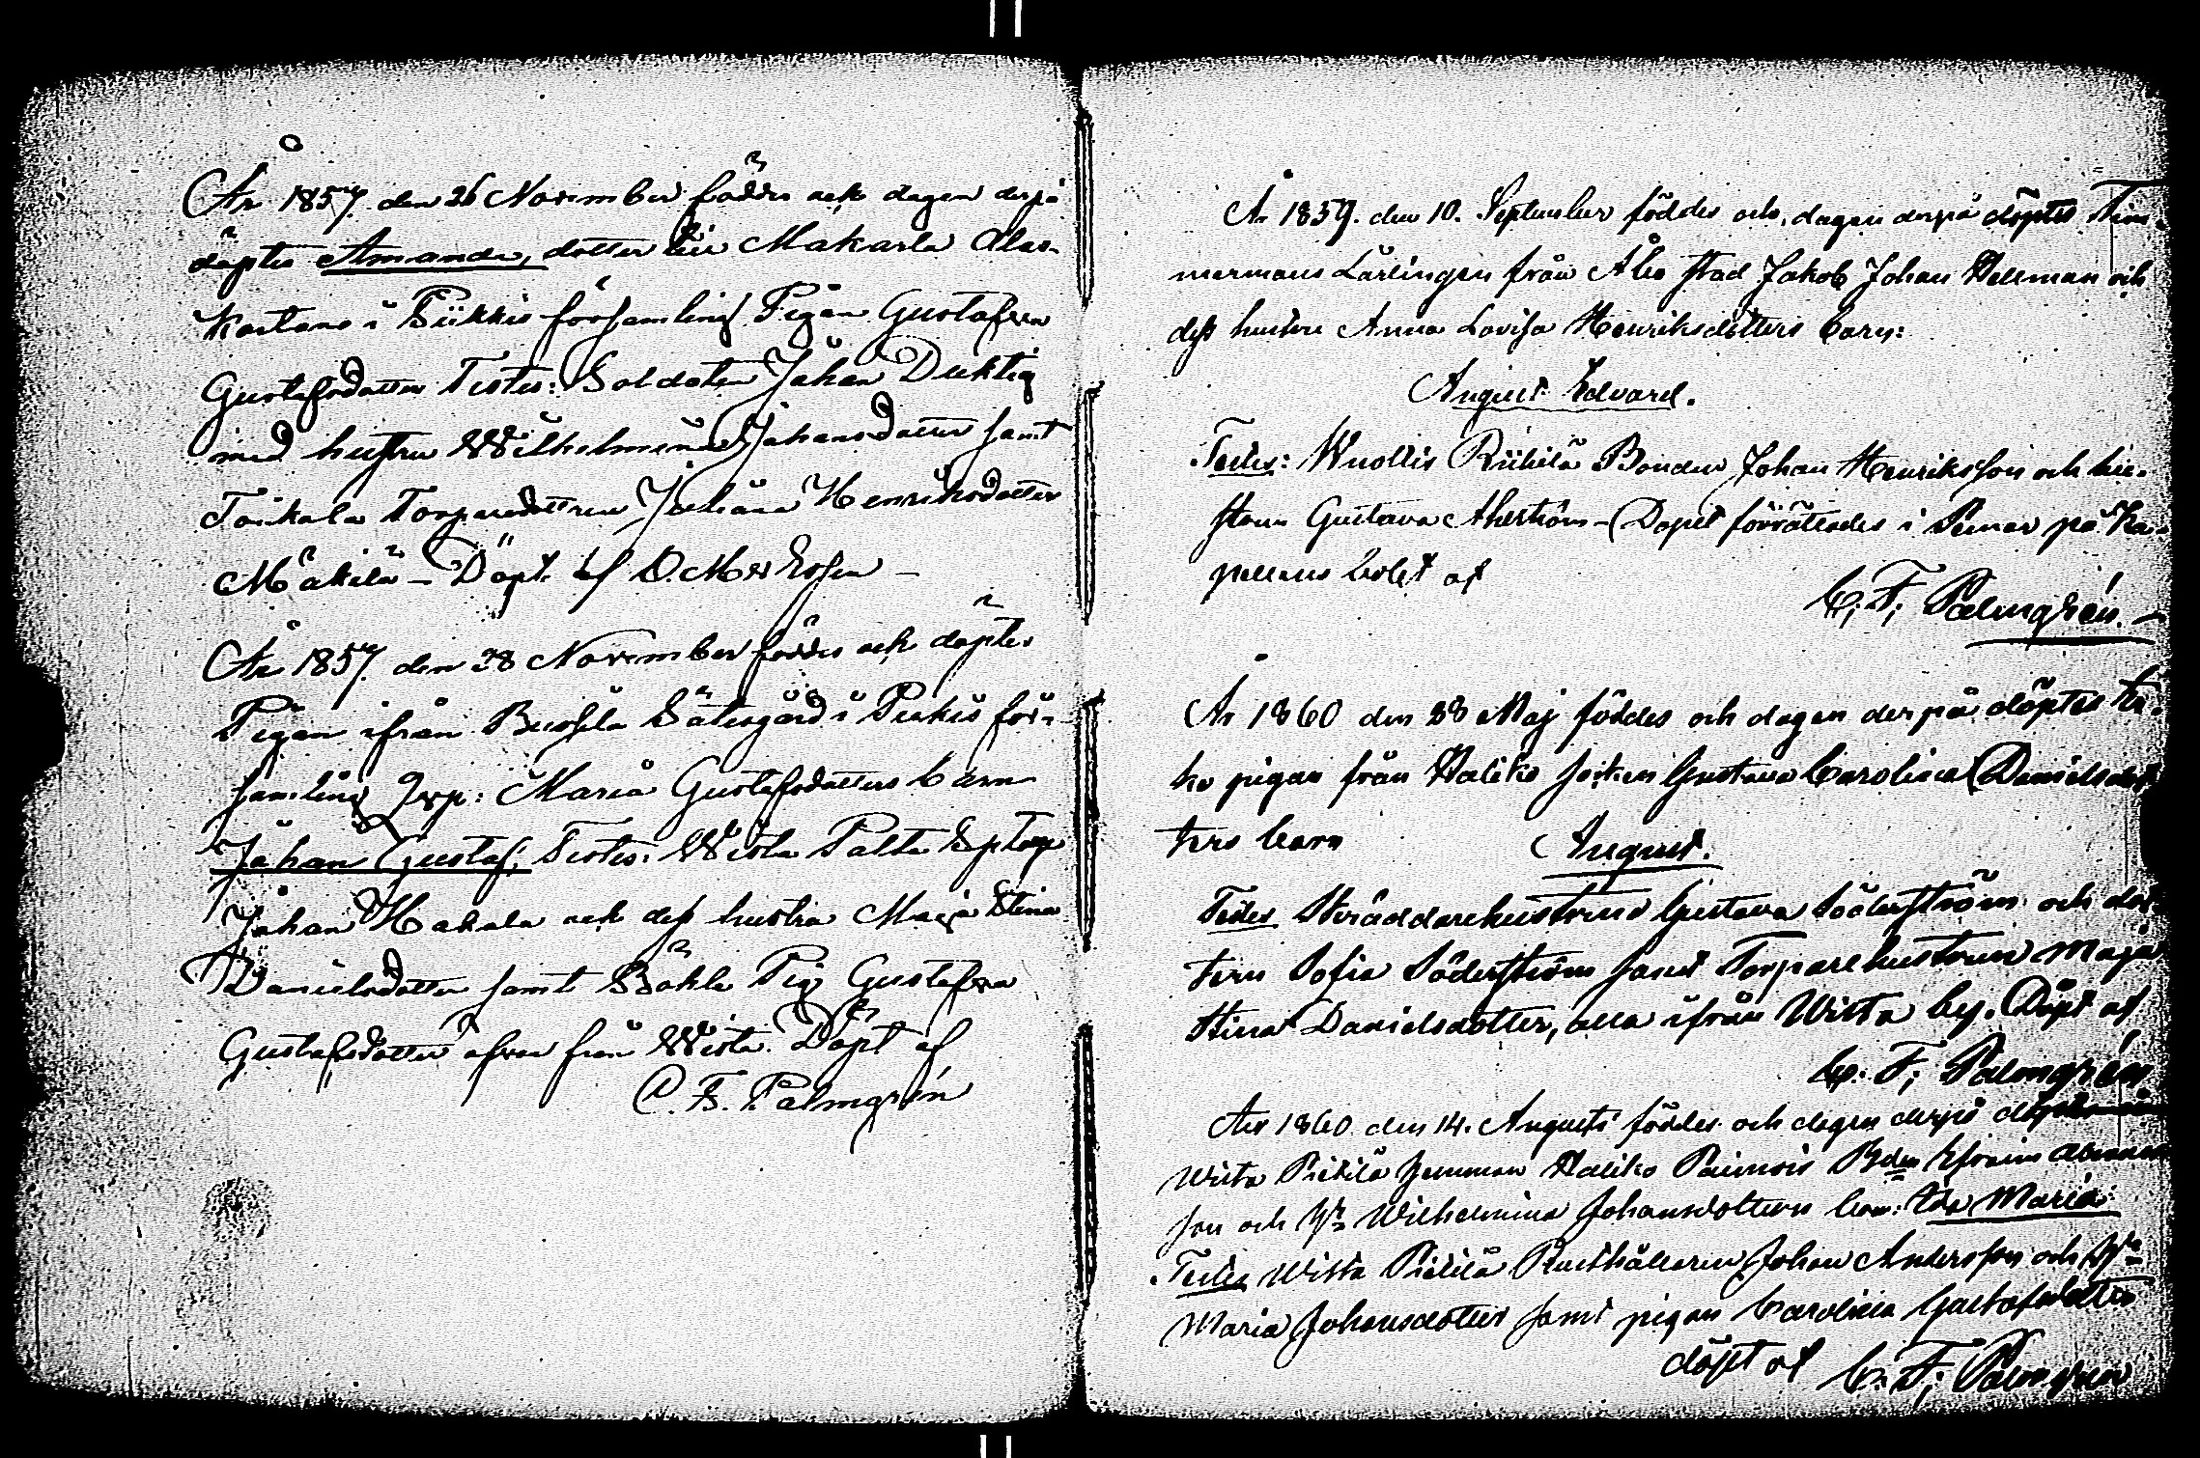 År 1857 den 26 November föddes ock dagen derpå
döptes Amanda, dotter till Makarla Alas-
Kartano i Piikkis församling Pigan Gustafva
Gustafsdotter Testes: Soldaten Johan Duktig
med hustru Wilhelmina Johansdotter samt
Toikala Torparedottren Juliana Henriksdotter
Mäkilä – Döpt af
År 1857 den 28 November föddes ock döptes
Pigan ifrån Sätesgård i Piikis för-
samling Maria Gustafsdotters barn
Johan Gustaf, Testes: Wista Palta
Johan Hakala ock dess hustru Maja Stina
Danielsdotter samt Pig Gustafva
Gustafsdotter äfven från Wista. Döpt af
C. F. Palmgrén
År 1859. den 10. September föddes och dagen derpå döptes Tim-
mermans Lärlingen från Åbo stad Jakob Johan Hellman och
dess hustru Anna Lovisa Henriksdotters barn:
August Edvard.
Testes: Wuollis Riihilä Bonden Johan Henriksson och hu-
strun Gustava – Dopet förrättades i Pemar på Ka-
pellans bolet af
C. F. Palmgrén. –
År 1860 den 28 Maj föddes och dagen derpå döptes
pigan från Haliko socken Gustava Carolina Danielsdot-
ters barn August.
Testes Skräddarehustrun Gustava Söderström och dot-
tern Sofia Söderström samt Torparehustrun Maja
Stina Danielsdotter, alla ifrån Wista by. Döpt af
C. F. Palmgrén
År 1860 den 14. Augusti föddes och dagen derpå
Wista Pietilä Haliko Bdn Efraim
son och Hu Wilhelmina Johansdotters barn: Ida Maria
Testes Wista Pietilä Rusthållaren Johan Andersson och Hu
Maria Johansdotter samt pigan Carolina Gustafsdotter
döpt af C. F. Palmgrén